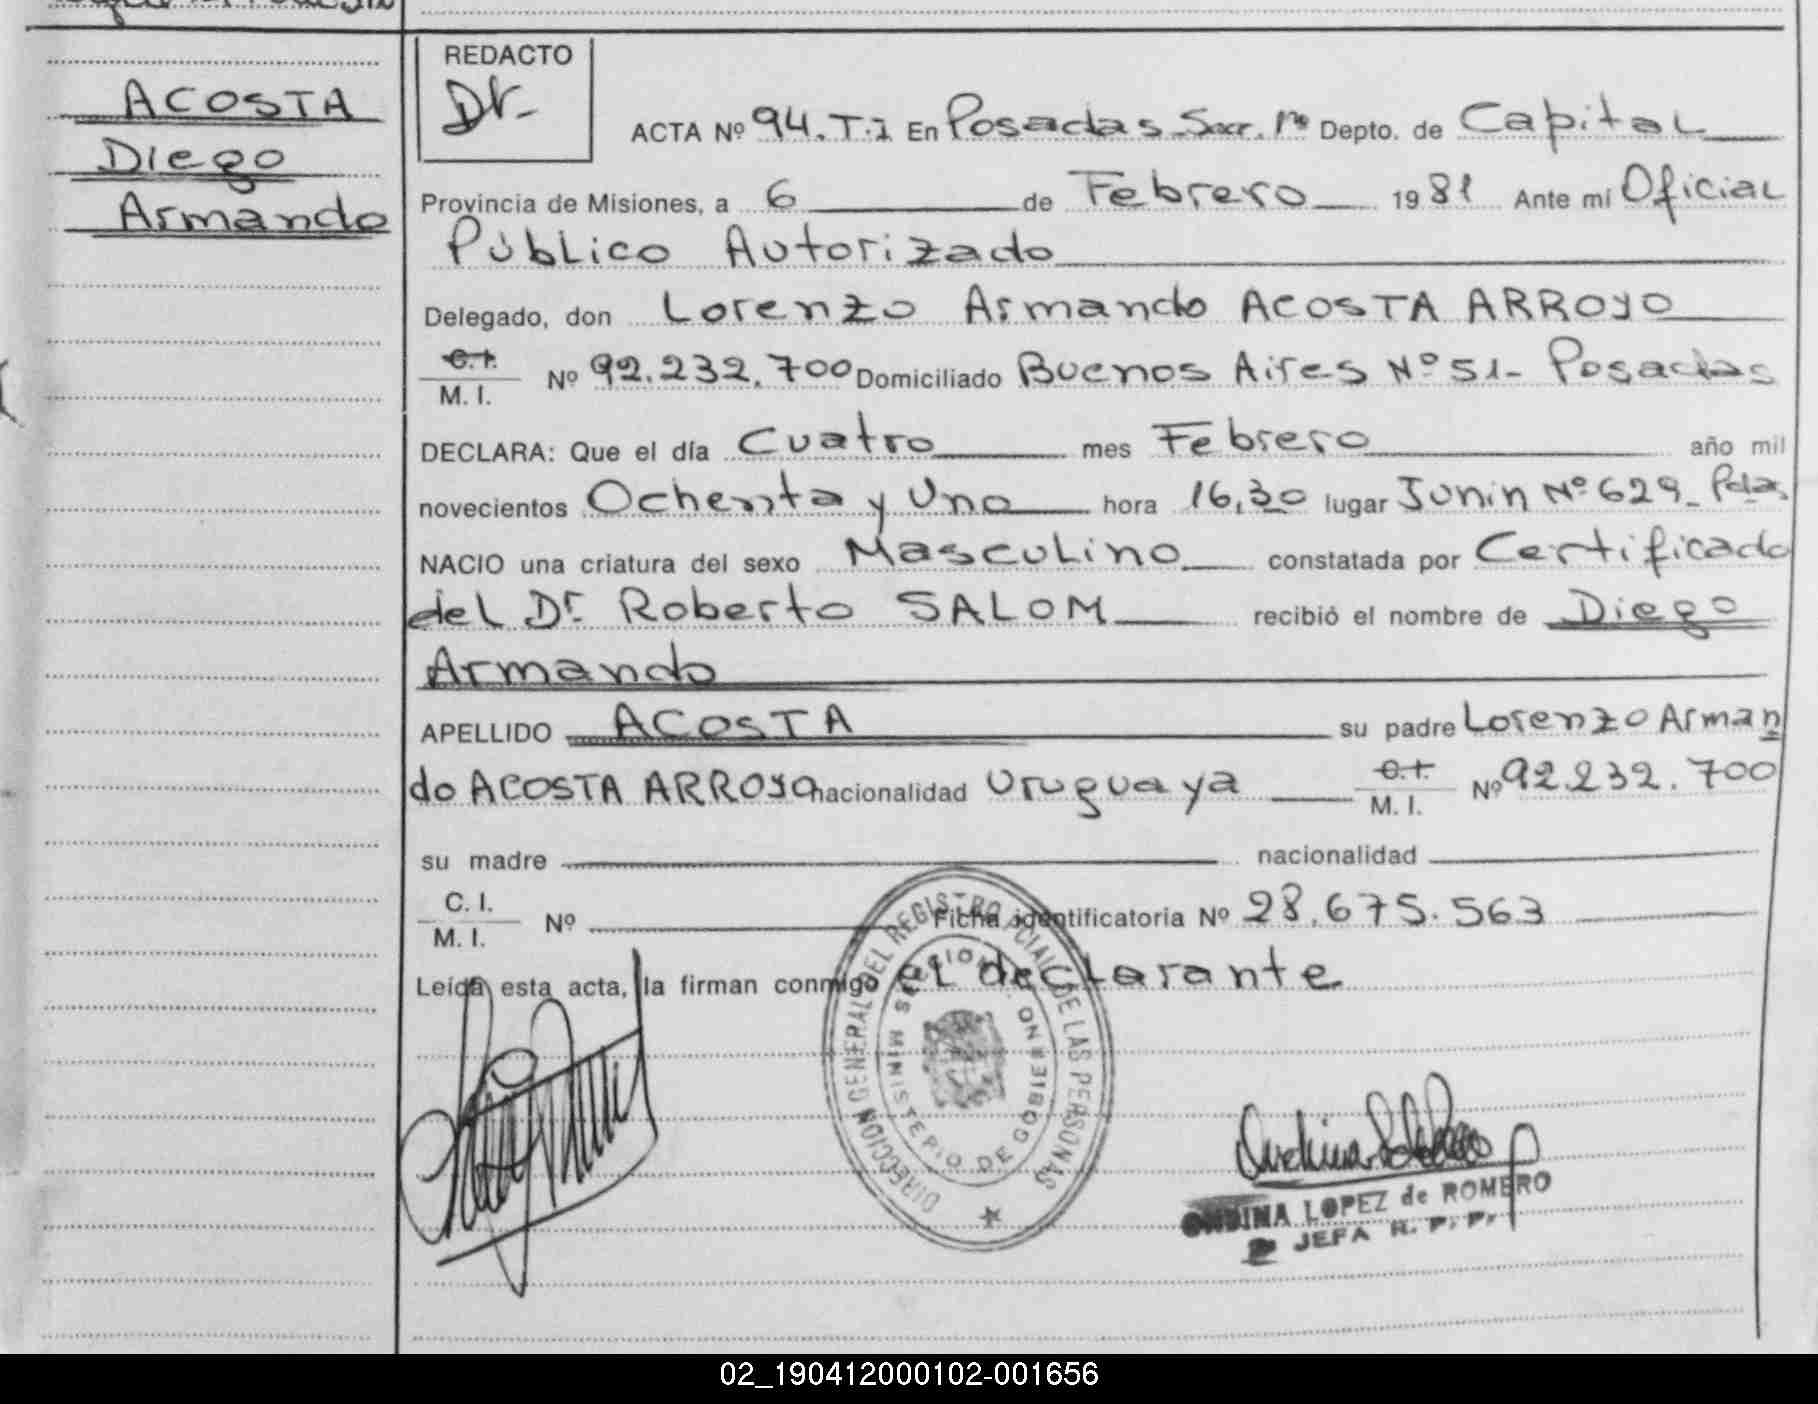 ACOSTA
Diego
Armando
REDACTO
Dr.
ACTA Nº 94. T.1 En Posadas Secc. 1ra Depto. de Capital
Provincia de Misiones, a 6 de Febrero 1981 Ante mí Oficial
Público Autorizado
Delegado, don Lorenzo Armando ACOSTA ARROYO
C.I.
M. I. Nº 92.232.700 Domiciliado Buenos Aires Nº 51- Posadas
DECLARA: Que el día Cuatro mes Febrero año mil
novecientos Ochenta y Uno hora 16,30 lugar Junin Nº 629- Pdas
NACIO una criatura del sexo Masculino constatada por Certificado
del Dr. Roberto SALOM recibió el nombre de Diego
Armando
APELLIDO ACOSTA su padre Lorenzo Arman
do ACOSTA ARROYO nacionalidad Uruguaya C.I. M. I. Nº 92.232.700
su madre nacionalidad
C. I.
M. I. Nº Ficha identificatoria Nº 28.675.563
Leída esta acta, la firman conmigo el declarante
DIRECCION GENERAL DEL REGISTRO PCIAL. DE LAS PERSONAS
MINISTERIO DE GOBIERNO
ONDINA LOPEZ de ROMERO
JEFA R. P. P.
02_190412000102-001656